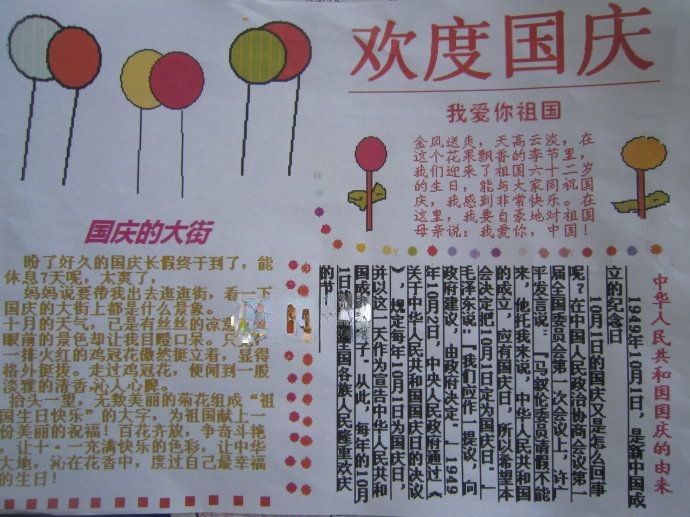 欢度国庆
我爱你祖国
金风送爽，天高云淡，在
这个花果飘香的季节里，
我们迎来了祖国六十二岁
的生日，能与大家同祝国
庆，我感到非常快乐。在
这里，我要自豪地对祖国
母亲说：我爱你，中国！
国庆的大街
盼了好久的国庆长假终于到了，能
休息7天呢，太爽了，
妈妈说要带我出去逛逛街，看一下
国庆的大街上都是什么景象。
十月的天气，己是有丝丝的凉
眼前的景色却让我目瞪口呆。只
一排火红的鸡冠花傲然挺立着，显得
格外挺拔。走过鸡冠花，便闻到一股
淡雅的清香沁人心脾。
抬头一望，无数美丽的菊花组成“祖
国生日快乐”的大字，为祖国献上一
份美丽的祝福！百花齐放，争奇斗艳
，让十·一充满快乐的色彩，让中华
大地，沁在花香中，度过自己最幸福
的生日！
中华人民共和国国庆的由来
1949年10月1日，是新中国成
立的纪念日
10月1日的国庆又是怎么回事
呢？在中国人民政治协商会议第一
届全国委员会第一次会议上，许广
平发言说：“马叙伦委员请假不能
来，他托我来说，中华人民共和国
的成立，应有国庆日，所以希望本
会决定把10月1日定为国庆日。”
毛泽东说：“我们应作一提议，向
政府建议，由政府决定。”1949
年10月2日，中央人民政府通过《
关于中华人民共和国国庆日的决议
》，规定每年10月1日为国庆日，
并以这一天作为宣告中华人民共和
国成
子。从此，每年的10月
1日
全国各族人民隆重欢庆
的节